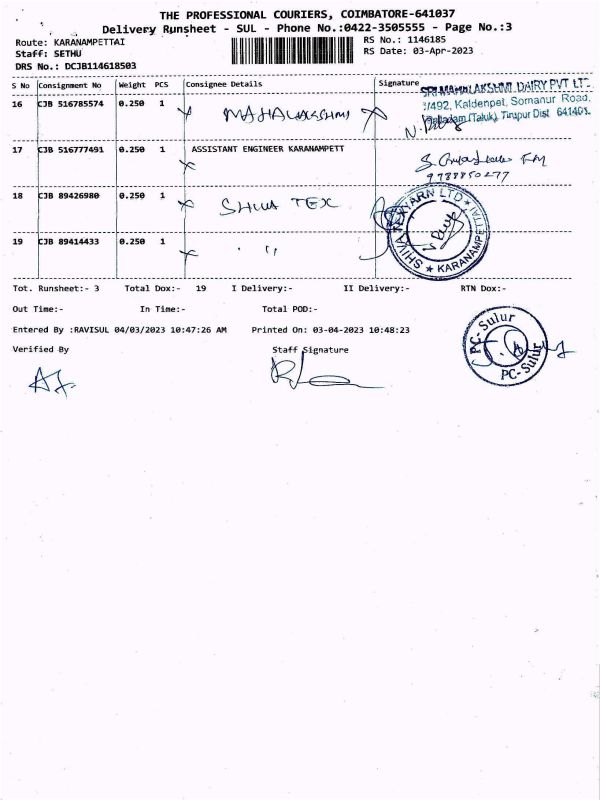 THE PROFESSIONAL COURIERS, COIMBATORE-641037
Delivery Runsheet - SUL - Phone No.:0422-3505555 - Page No.:3
Route: KARANAMPETTAI
RS No.: 1146185
Staff: SETHU
RS Date: 03-Apr-2023
DRS No.: DCJB114618503
S No Consignment No Weight PCS Consignee Details Signature
SRI MAHALAKSHMI DAIRY PVT LT
/492, Kaldenpet, Somanur Road,
Palladam (Taluk), Tirupur Dist 641401.
16 CJB 516785574 0.250 1 MAHALAKSHMI
17 CJB 516777491 0.250 1 ASSISTANT ENGINEER KARANAMPETT
9788850277
18 CJB 89426980 0.250 1 SHIVA TEX
SHIVA TEXYARN LTD ★ KARANAMPETTAI ★
19 CJB 89414433 0.250 1 ,,
Tot. Runsheet:- 3 Total Dox:- 19 I Delivery:- II Delivery:- RTN Dox:-
Out Time:- In Time:- Total POD:-
Entered By :RAVISUL 04/03/2023 10:47:26 AM Printed On: 03-04-2023 10:48:23
Verified By Staff Signature
PC-Sulur
PC-Sulur